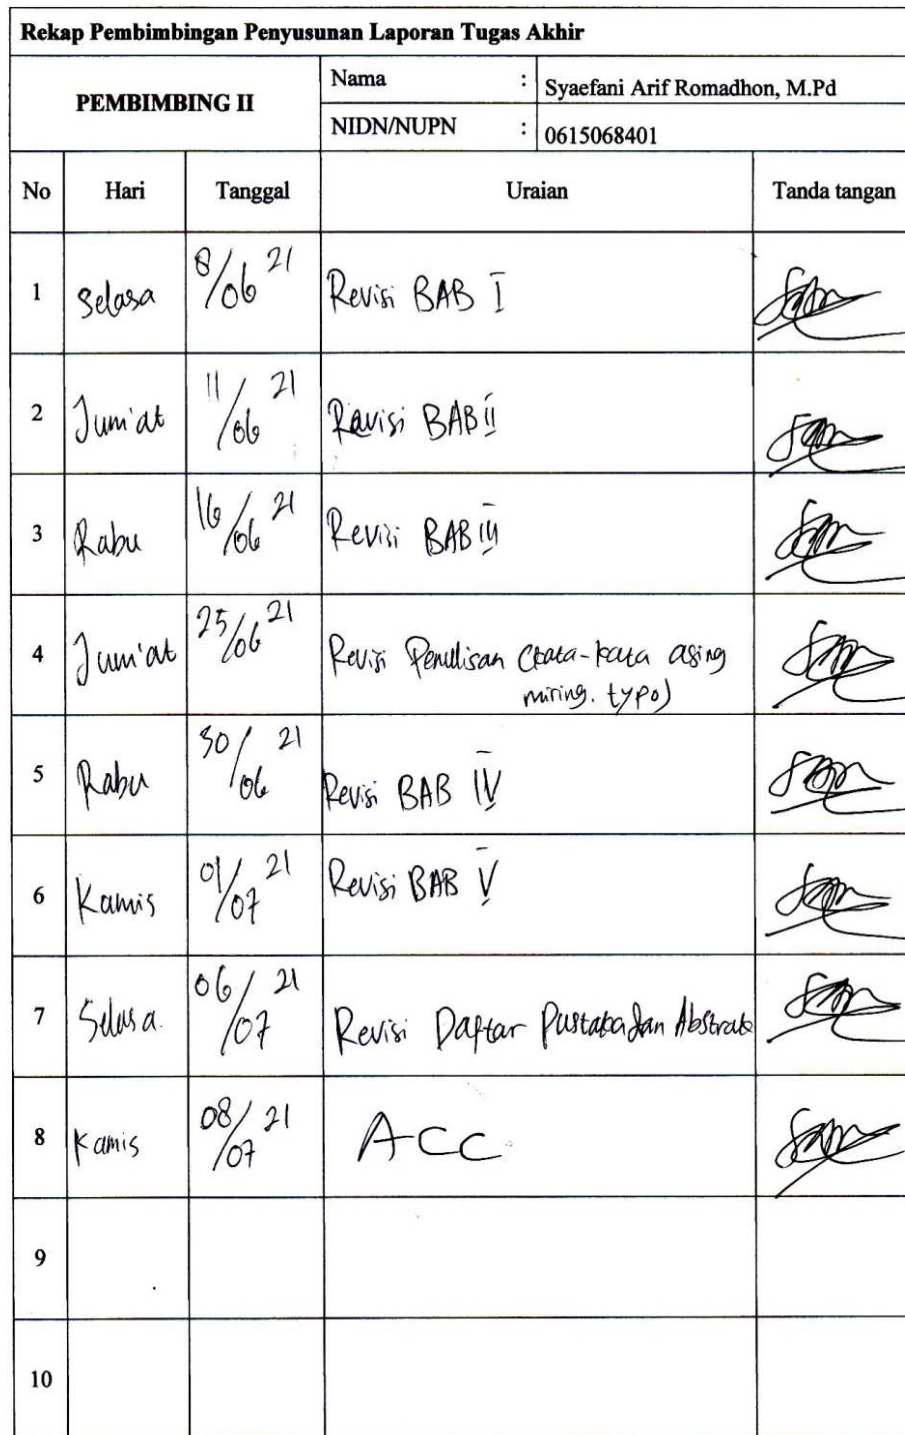 Rekap Pembimbingan Penyusunan Laporan Tugas Akhir
PEMBIMBING II
Nama : Syaefani Arif Romadhon, M.Pd
NIDN/NUPN : 0615068401
No Hari Tanggal Uraian Tanda tangan
1 Selasa 8/06 21 Revisi BAB I
2 Jum'at 11/06 21 Revisi BAB II
3 Rabu 16/06 21 Revisi BAB III
4 Jum'at 25/06 21 Revisi Penulisan (kata-kata asing
miring. typo)
5 Rabu 30/06 21 Revisi BAB IV
6 Kamis 01/07 21 Revisi BAB V
7 Selasa. 06/07 21 Revisi Daftar Pustaka dan Abstrak
8 Kamis 08/07 21 ACC
9
10